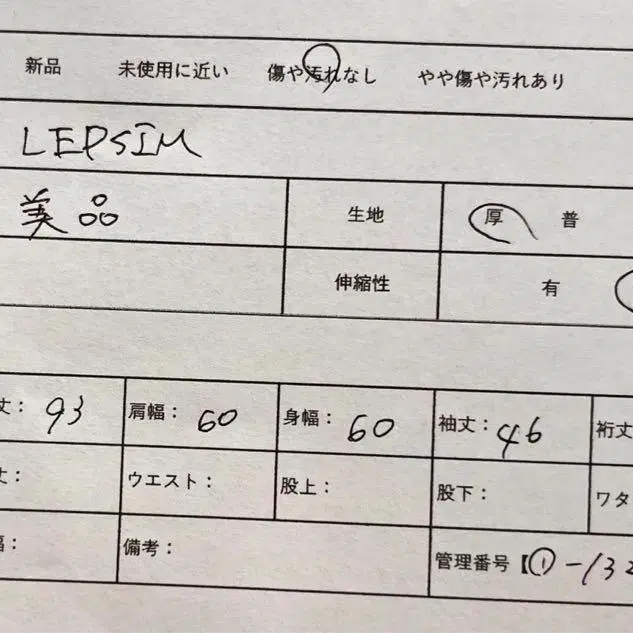 新品 未使用に近い 傷や汚れなし やや傷や汚れあり
LEPSIM
美品 生地 厚 普
伸縮性 有
丈: 93 肩幅: 60 身幅: 60 袖丈: 46 裄丈
丈: ウエスト: 股上: 股下: ワタ
幅: 備考: 管理番号【①-132